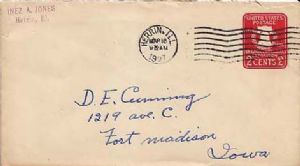 INEZ A. JONES
Herrin, Ill.
HERRIN, ILL.
1937
UNITED STATES
POSTAGE
2 CENTS 2
D. E. Cunning
1219 ave. C.
Fort madison
Iowa